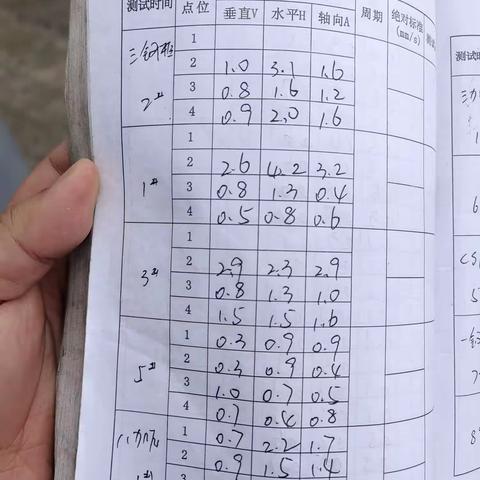 测试时间 点位 垂直V 水平H 轴向A 周期 绝对标准(mm/s) 测试
三钢 1
2 1.0 3.1 1.6
2# 3 0.8 1.6 1.2
4 0.9 2.0 1.6
1
2 2.6 4.2 3.2
1# 3 0.8 1.3 0.4
4 0.5 0.8 0.6
1
2 2.9 2.3 2.9
3# 3 0.8 1.3 1.0
4 1.5 1.5 1.6
1 0.3 0.9 0.9
2 0.3 0.9 0.4
5# 3 1.0 0.7 0.5
4 0.7 0.4 0.8
1 0.7 2.2 1.7
2 0.9 1.5 1.4
3
测试时
6
5
8